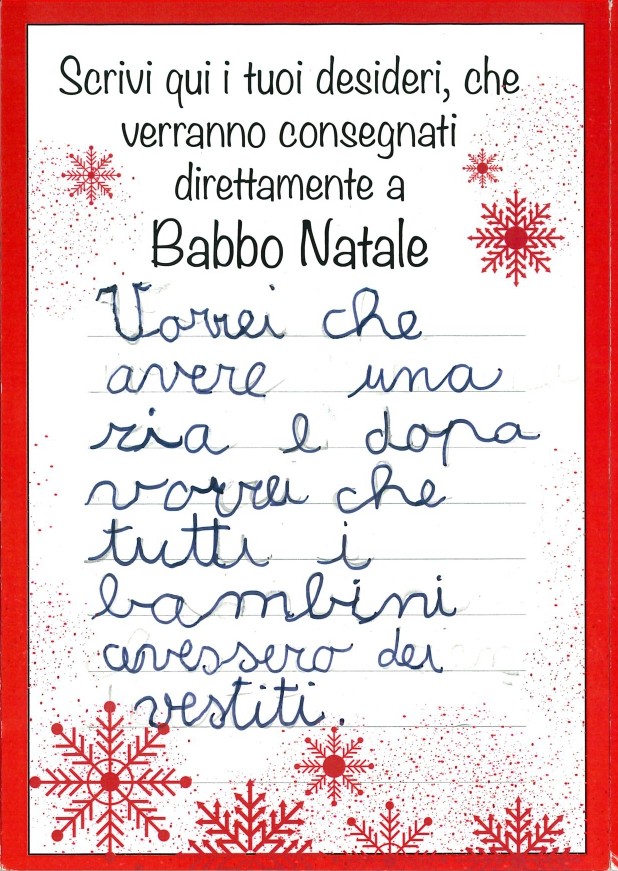 Scrivi qui i tuoi desideri, che
verranno consegnati
direttamente a
Babbo Natale
Vorrei che
avere una
zia e dopa
vorrei che
tutti i
bambini
avessero dei
vestiti.